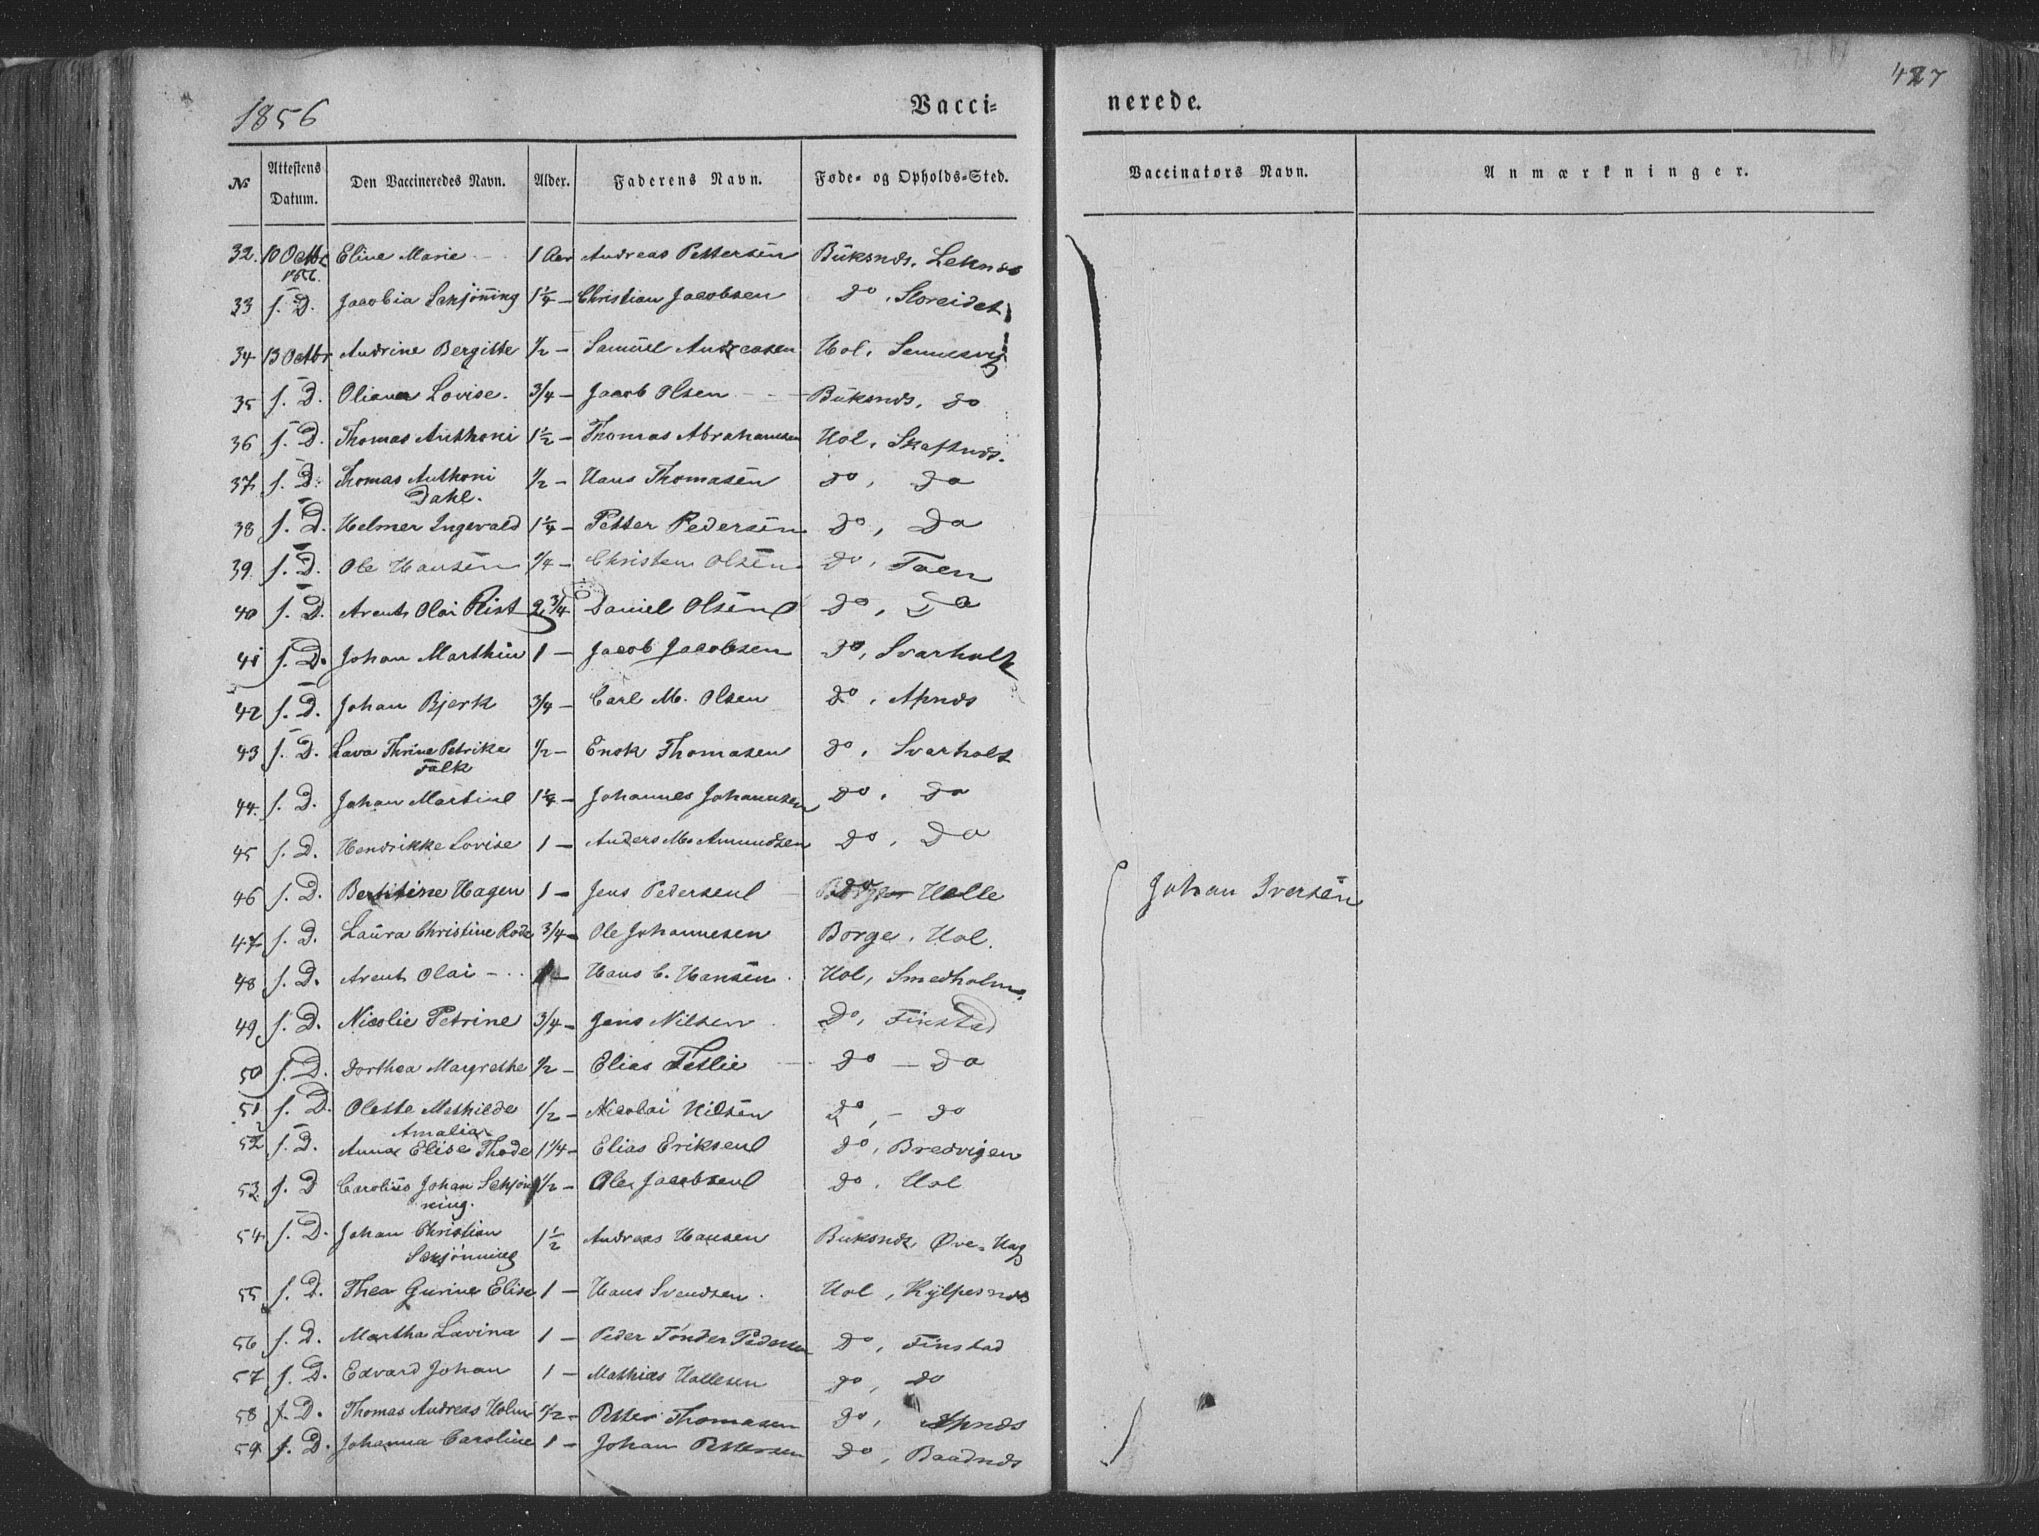 1856 Vacci= nerede. 427
No Attestens Datum. Den Vaccineredes Navn. Alder. Faderens Navn. Føde= og Opholds=Sted. Vaccinators Navn. Anmærkninger.
32. 10 Octbr Eline Marie 1 Aar Andreas Pettersen Buksnds. Leknes
1856
33 s. D. Jacobia Schjöning 1¼ - Christian Jacobsen do, Storeidet
34 13 Octbr Andrine Bergitte ½ - Samuel Andreasen Hol, Sennesvig
35 s. D. Oliana Lovise. 3/4 - Jacob Olsen - - Buksnds, do
36 s. D. Thomas Anthoni 1½ - Thomas Abrahamsen Hol, Skaftnds.
37 s. D. Thomas Anthoni ½ - Hans Thomasen do, do
Dahl.
38 s. D. Helmer Ingevald 1¼ - Petter Pedersen do, Do
39. s. D. Ole Hansen ¼ - Christen Olsen do, Taen
40 s. D. Arent Olai Rist 2 3/4 Daniel Olsen do, Do
41 s. D. Johan Marthin 1 - Jacob Jacobsen do, Svarholt
42 s. D. Johan Bjerk 3/4 - Carl M. Olsen do, Apnds
43 s. D. Lava Thrine Petrike ½ - Enok Thomasen do, Svarholt
Falk
44. s. D. Johan Martine 1¼ - Johannes Johannsen do, do
45 s. D. Hendrikke Lovise 1 - Anders M. Amundsen do, Do
46 s. D. Bertitine Hagen 1 - Jens Pedersen do Halle Johan Iversen
47 s. D. Laura Christine Rode 3/4 - Ole Johannesen Borge, Hol.
48 s. D. Arent Olai - .. 1 - Hans C. Hansen. Hol, Smedholm.
49 s. D. Nicolie Petrine 3/4 - Jens Nilsen Do, Finstad
50 s. D. Dorthea Margrethe ½ - Elias Fetlie do - Do
51 s. D. Olette Mathilde 1/2 - Nicolai Nilsen do, - do
Amalia
52 s. D. Anna Elise Thode 1¼ - Elias Eriksen do, Bredvigen
53 s. D Carolius Johan Schjön ½ - Ole Jacobsen do. Hol
ning.
54 s. D. Johan Christian 1½ Andreas Hansen Buksnds, Øvr. Hag
Schjönning
55 s. D. Thea Gurine Elise 1 - Hans Svendsen. Hol, Kylpesnds
56 s. D. Martha Lavina 1 - Peder Tönder Pedersen Do, Finstad
57 s. D. Edvard Johan 1 - Mathias Hallesen do, do
58 s. D. Thomas Andreas Holm ½ - Petter Thomasen do, Apnds
59 s. D. Johanna Caroline 1 - Johan Pettersen do, Baadnds